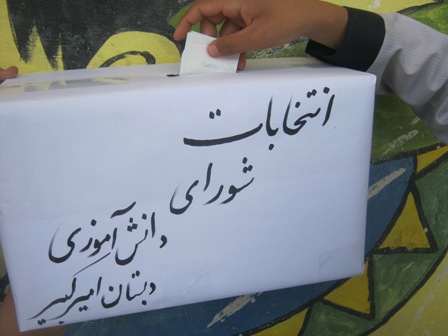 انتخابات
شورای
دانش آموزی
دبستان امیرکبیر